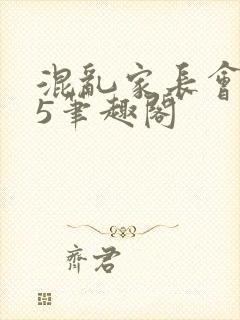 混亂家長會
5筆趣閣
齊君